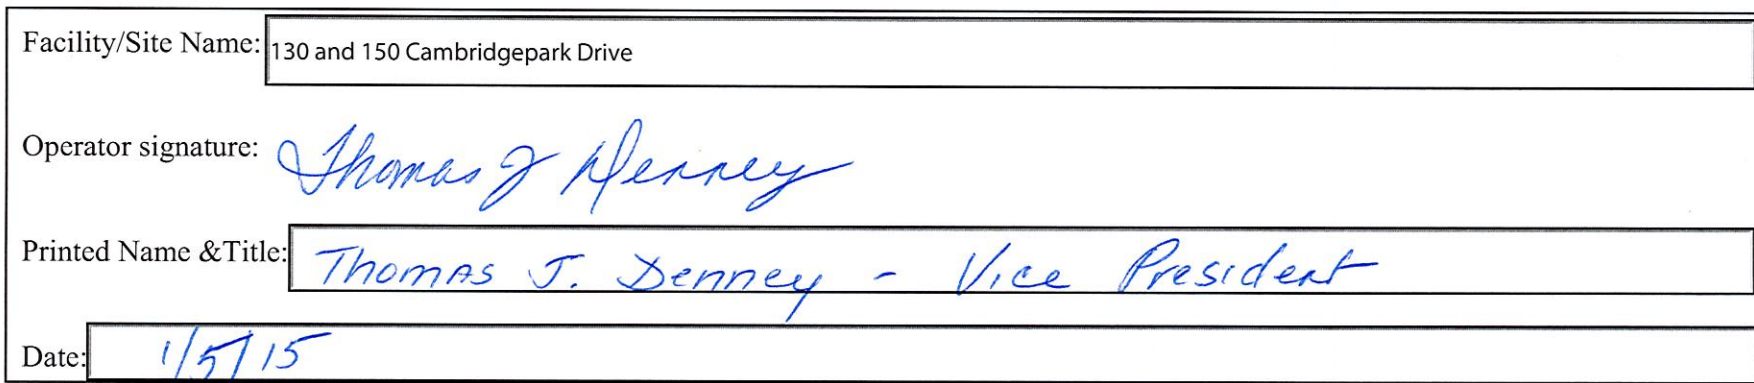 Facility/Site Name: 130 and 150 Cambridgepark Drive
Operator signature: Thomas J Denney
Printed Name &Title: Thomas J. Denney - Vice President
Date: 1/5/15